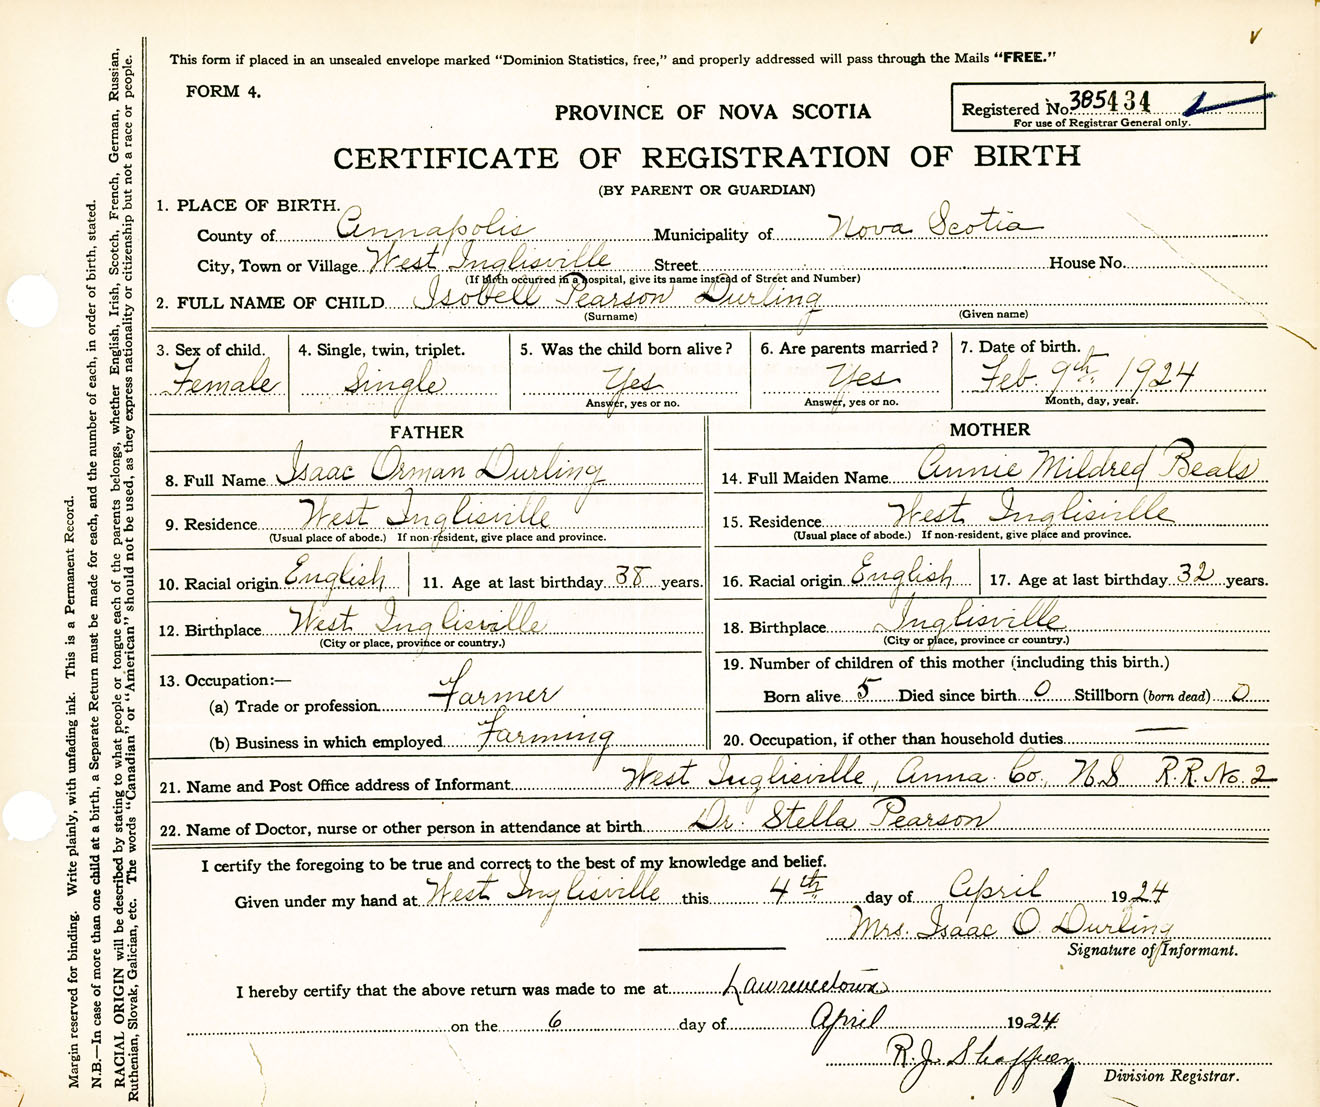 This form if placed in an unsealed envelope marked "Dominion Statistics, free," and properly addressed will pass through the Mails "FREE."
FORM 4.
PROVINCE OF NOVA SCOTIA
Registered No. 385434
For use of Registrar General only.
CERTIFICATE OF REGISTRATION OF BIRTH
(BY PARENT OR GUARDIAN)
1. PLACE OF BIRTH.
County of Annapolis Municipality of Nova Scotia
City, Town or Village West Inglisville Street House No.
(If birth occurred in a hospital, give its name instead of Street and Number)
2. FULL NAME OF CHILD Isobell Pearson Durling
(Surname) (Given name)
3. Sex of child. 4. Single, twin, triplet. 5. Was the child born alive? 6. Are parents married? 7. Date of birth.
Female Single Yes Yes Feb. 9th, 1924
Answer, yes or no. Answer, yes or no. Month, day, year.
FATHER MOTHER
8. Full Name Isaac Orman Durling 14. Full Maiden Name Annie Mildred Beals
9. Residence West Inglisville 15. Residence West Inglisville
(Usual place of abode.) If non-resident, give place and province. (Usual place of abode.) If non-resident, give place and province.
10. Racial origin English 11. Age at last birthday 38 years. 16. Racial origin English 17. Age at last birthday 32 years.
12. Birthplace West Inglisville 18. Birthplace Inglisville
(City or place, province or country.) (City or place, province or country.)
13. Occupation:— 19. Number of children of this mother (including this birth.)
(a) Trade or profession Farmer Born alive 5 Died since birth 0 Stillborn (born dead) 0
(b) Business in which employed Farming 20. Occupation, if other than household duties —
21. Name and Post Office address of Informant West Inglisville, Anna. Co., N.S R.R. No. 2
22. Name of Doctor, nurse or other person in attendance at birth Dr. Stella Pearson
I certify the foregoing to be true and correct to the best of my knowledge and belief.
Given under my hand at West Inglisville this 4th day of April 1924
Mrs. Isaac O. Durling
Signature of Informant.
I hereby certify that the above return was made to me at Lawrencetown
on the 6 day of April 1924
R. J. Shaffner
Division Registrar.
Margin reserved for binding. Write plainly, with unfading ink. This is a Permanent Record.
N.B.—In case of more than one child at a birth, a Separate Return must be made for each, and the number of each, in order of birth, stated.
RACIAL ORIGIN will be described by stating to what people or tongue each of the parents belongs, whether English, Irish, Scotch, French, German, Russian,
Ruthenian, Slovak, Galician, etc. The words "Canadian" or "American" should not be used, as they express nationality or citizenship but not a race or people.